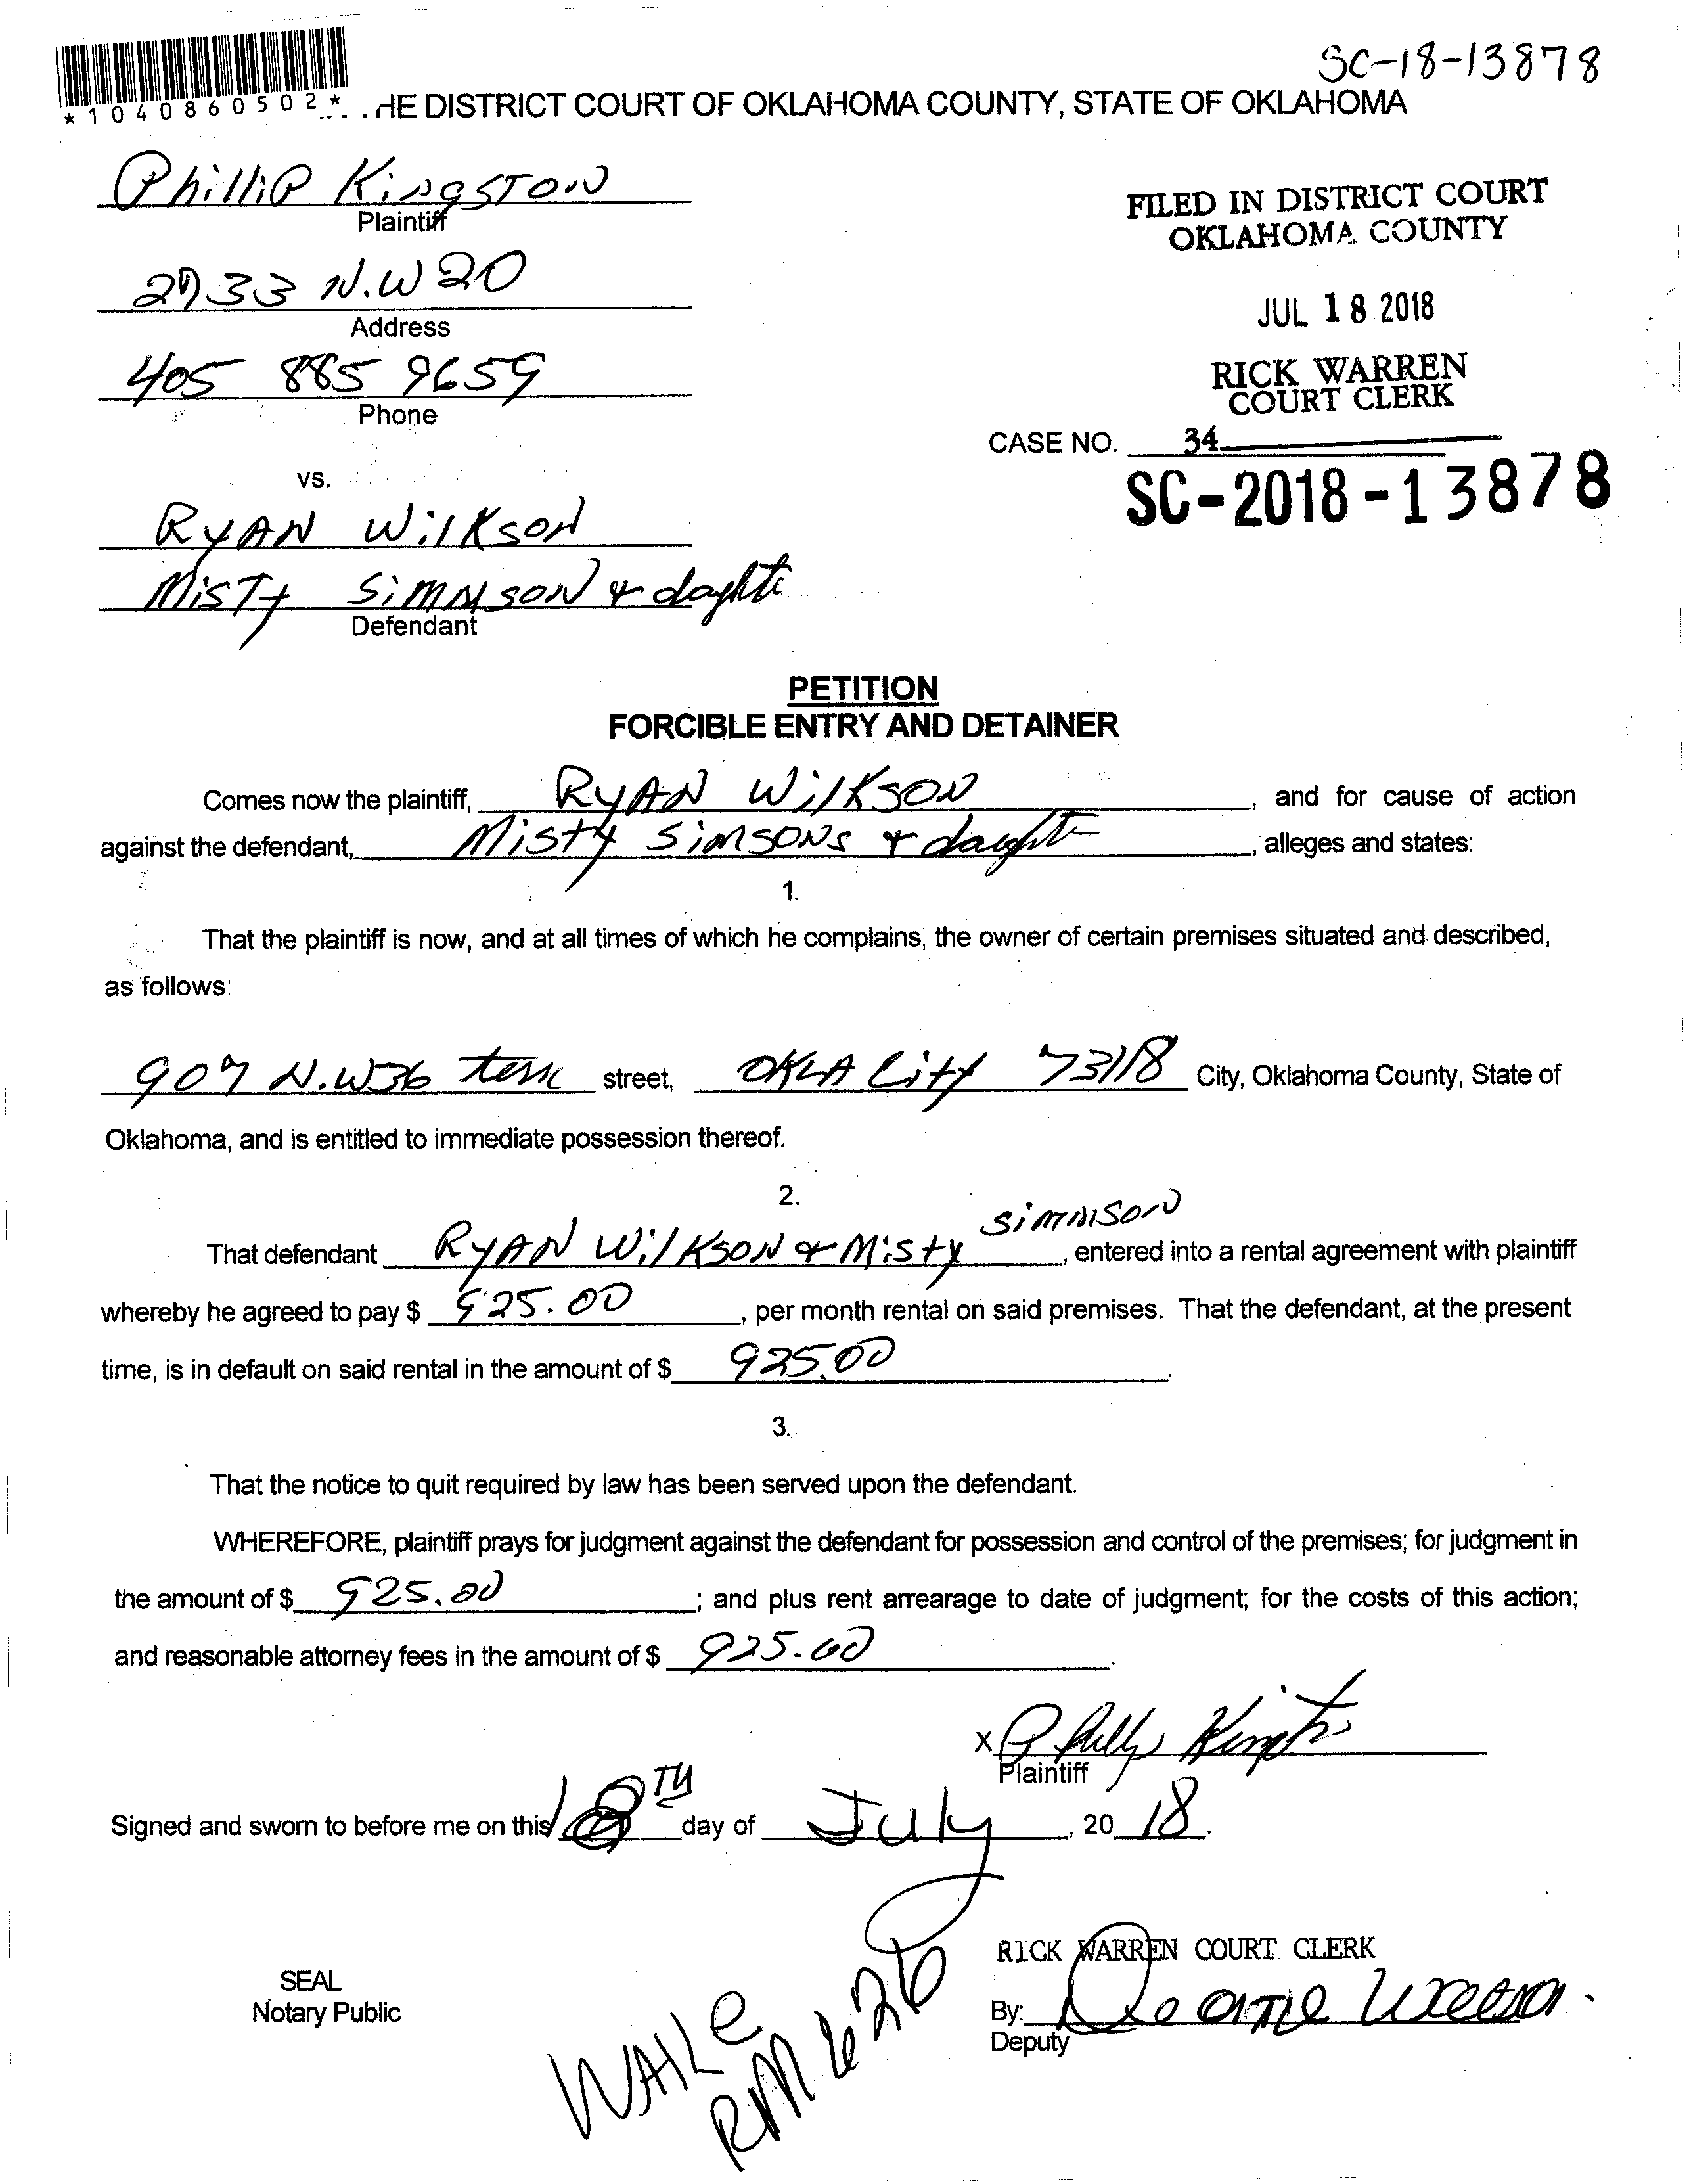 SC-18-13878
*1040860502*
HE DISTRICT COURT OF OKLAHOMA COUNTY, STATE OF OKLAHOMA
Phillip Kingston
Plaintiff
2733 N.W 20
Address
405 885 9659
Phone
FILED IN DISTRICT COURT
OKLAHOMA COUNTY
JUL 18 2018
RICK WARREN
COURT CLERK
CASE NO. 34
SC-2018-13878
vs.
RYAN WilKSON
MisTy SiMMSON &
Defendant
PETITION
FORCIBLE ENTRY AND DETAINER
Comes now the plaintiff, RYAN WilKSON, and for cause of action
against the defendant, Misty SiMSONS &, alleges and states:
1.
That the plaintiff is now, and at all times of which he complains, the owner of certain premises situated and described,
as follows:
907 N.W36 street, OKLA City 73118 City, Oklahoma County, State of
Oklahoma, and is entitled to immediate possession thereof.
2.
That defendant RYAN WilKSON & Misty SiMMSON, entered into a rental agreement with plaintiff
whereby he agreed to pay $ 925.00, per month rental on said premises. That the defendant, at the present
time, is in default on said rental in the amount of $ 925.00.
3.
That the notice to quit required by law has been served upon the defendant.
WHEREFORE, plaintiff prays for judgment against the defendant for possession and control of the premises; for judgment in
the amount of $ 925.00; and plus rent arrearage to date of judgment; for the costs of this action;
and reasonable attorney fees in the amount of $ 925.00.
x Phillip Kingston
Plaintiff
Signed and sworn to before me on this 18TH day of July, 20 18.
RICK WARREN COURT CLERK
SEAL
Notary Public
By:
Deputy
RM 626